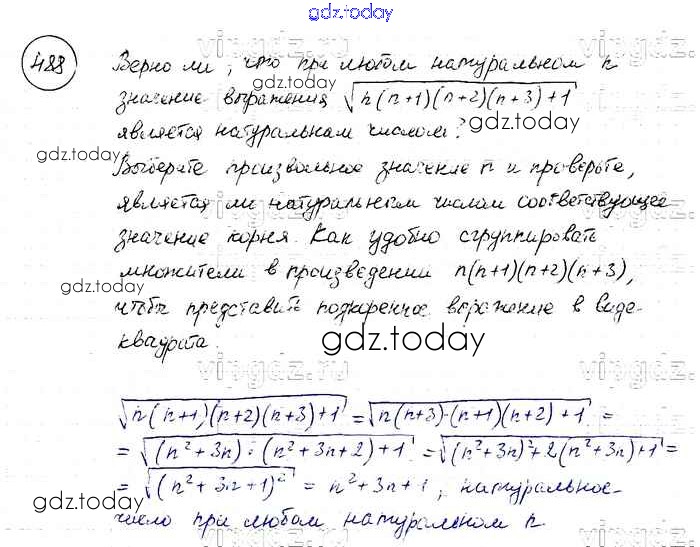 gdz.today
488
Верно ли, что при любом натуральном n
gdz.today
значение выражения √(n(n+1)(n+2)(n+3)+1)
является натуральным числом? gdz.today
gdz.today
Выберете произвольное значение n и проверьте,
является ли натуральным числом соответствующее
значение корня. Как удобно сгруппировать
множители в произведении n(n+1)(n+2)(n+3),
gdz.today
чтобы представить подкоренное выражение в виде
квадрата.
gdz.today
vipgdz.ru
√(n(n+1)(n+2)(n+3)+1) = √(n(n+3)·(n+1)(n+2)+1) =
= √((n²+3n)·(n²+3n+2)+1) = √((n²+3n)²+2(n²+3n)+1) =
gdz.today
= √((n²+3n+1)²) = n²+3n+1, натуральное
gdz.today
gdz.today
число при любом натуральном n